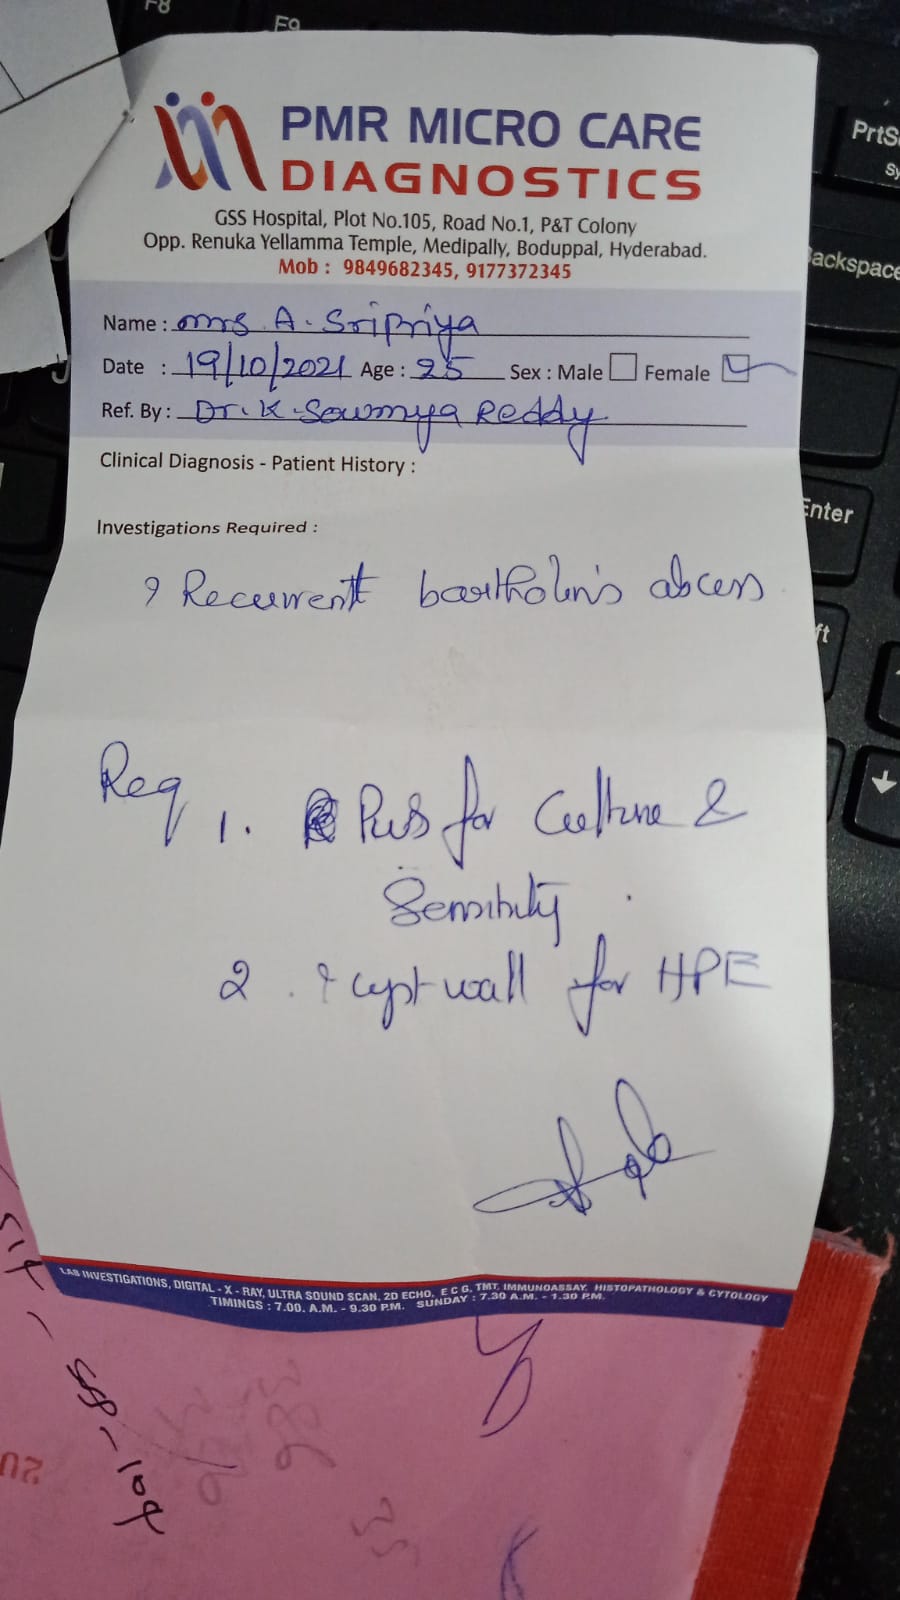 F8
F9
PrtSc
Sy
Backspace
Enter
ft
PMR MICRO CARE
DIAGNOSTICS
GSS Hospital, Plot No.105, Road No.1, P&T Colony
Opp. Renuka Yellamma Temple, Medipally, Boduppal, Hyderabad.
Mob : 9849682345, 9177372345
Name : Mrs A. Sripriya
Date : 19/10/2021 Age : 25 Sex : Male Female
Ref. By : Dr. K. Sowmya Reddy
Clinical Diagnosis - Patient History :
Investigations Required :
? Recurrent bartholin's abcess
Req 1. Pus for Culture &
Sensitivity.
2. ? cyst wall for HPE
LAB INVESTIGATIONS, DIGITAL - X - RAY, ULTRA SOUND SCAN, 2D ECHO, E C G, TMT. IMMUNOASSAY. HISTOPATHOLOGY & CYTOLOGY
TIMINGS : 7.00. A.M. - 9.30 P.M. SUNDAY : 7.30 A.M. - 1.30 P.M.